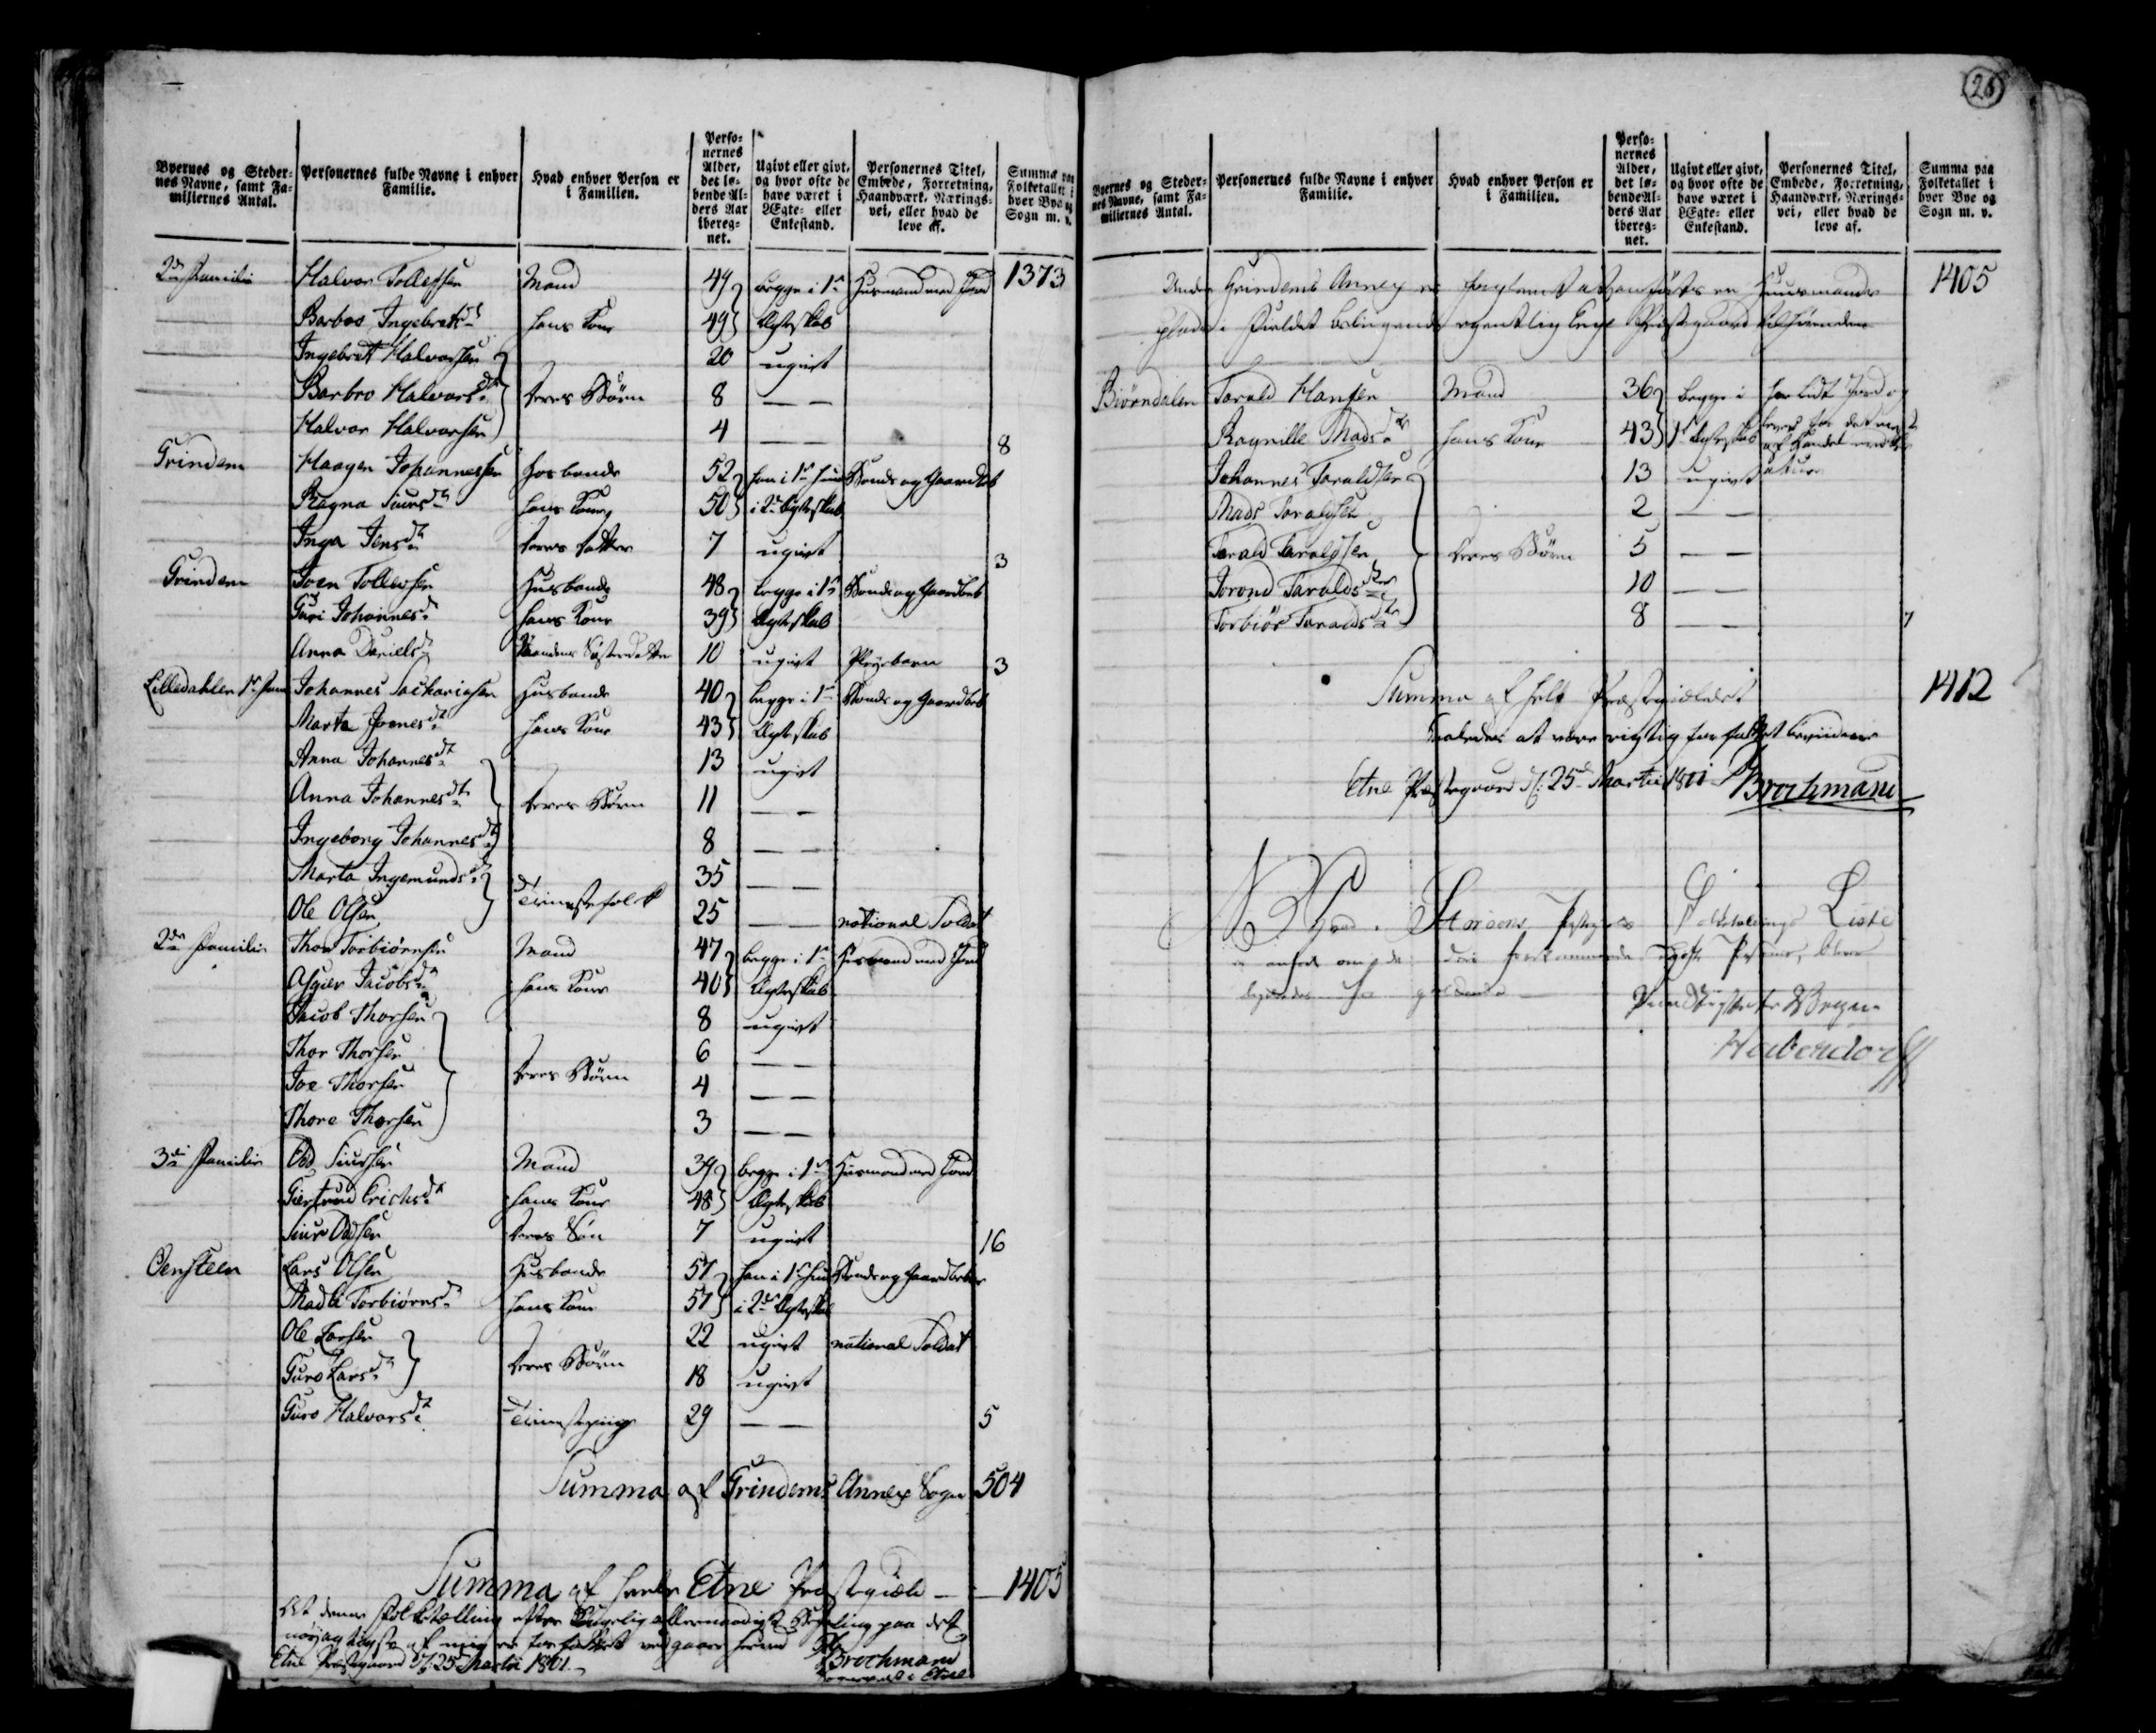 Byernes og Steder-
nes Navne, samt Fa-
miliernes Antal.
Personernes fulde Navne i enhver
Familie.
Hvad enhver Person er
i Familien.
Perso-
nernes
Alder,
det lø-
bende Al-
ders Aar
ibereg-
net.
Ugivt eller givt,
og hvor ofte de
have været i
Ægte- eller
Enkestand.
Personernes Titel,
Embede, Forretning,
Haandværk, Nærings-
vei, eller hvad de
leve af.
Summa paa
Folketallet i
hver Bye og
Sogn m. v.
2den Familie Halvor Tollefsen Mand 49 begge i 1ste Husmand med Jord 1373
Barbos Ingebretsdr hans Kone 49 Ægteskab
Ingebret Halvorsen 20 ugivt
Barbro Halvorsdr deres Børn 8 — —
Halvor Halvorsen 4 — — 8
Grindem Haagen Johannessen Hosbonde 52 han i 1ste hun Bonde og Gaardbeb
Ragna Siursdr hans Kone 50 i 2det Ægteskab
Inga Jensdr deres Datter 7 ugivt 3
Grindem Joen Tollevsen Husbonde 48 begge i 1ste Bonde og Gaardbeb
Guri Johannesdr hans Kone 39 Ægteskab
Anna Danielsdr Mandens Søsterdatter 10 ugivt Pleyebarn 3
Lilledahlen 1ste Fam Johannes Sachariasen Husbonde 40 begge i 1ste Bonde og Gaardbeb
Marta Joenesdr hans Kone 43 Ægteskab
Anna Johannesdr 13 ugivt
Anna Johannesdtr deres Børn 11 — —
Ingeborg Johannesdr 8 — —
Marta Ingemundsdr Tienestefolk 35 — —
Ole Olsen 25 — — national Soldat
2den Familie Thor Torbiørnsen Mand 47 begge i 1ste Husmand med Jord
Asgier Jacobsdr hans Kone 40 Ægteskab
Jacob Thorsen 8 ugivt
Thor Thorsen 6 — —
Joe Thorsen deres Børn 4 — —
Thore Thorsen 3 — —
3die Familie Odd Siursen Mand 39 begge i 1ste Husmand med Jord
Giertrud Erichsdr hans Kone 48 Ægteskab
Siur Odsen deres Søn 7 ugivt 16
Oensteen Lars Olsen Husbonde 51 han i 1ste hun Bonde og Gaardbeboer
Madle Torbiørnsdr hans Kone 51 i 2det Ægteskab
Ole Larsen 22 ugivt national Soldat
Guro Larsdr deres Børn 18 ugivt
Guro Halvorsdr Tienestepige 29 — — 5
Summa af Grindems Annex Sogn 504
Summa af heele Etne Præstegield — 1405
At denne Folketelling efter Kongelig allernaadigst Befaling paa det
nøyagtigste af mig er forfattet vedgaaes herved
Etne Præstegaard d: 25 Martii 1801
Brochmann
Sognepræst i Etne
26
Byernes og Steder-
nes Navne, samt Fa-
miliernes Antal.
Personernes fulde Navne i enhver
Familie.
Hvad enhver Person er
i Familien.
Perso-
nernes
Alder,
det lø-
bende Al-
ders Aar
ibereg-
net.
Ugivt eller givt,
og hvor ofte de
have været i
Ægte- eller
Enkestand.
Personernes Titel,
Embede, Forretning,
Haandværk, Nærings-
vei, eller hvad de
leve af.
Summa paa
Folketallet i
hver Bye og
Sogn m. v.
Under Grindems Annex er en Huusmands 1405
plads i Fieldet beliggende egentlig Præstegaard tilhørende
Biørndalen Tarald Hansen Mand 36 begge i har lidt Jord og
Ragnille Madsdr hans Kone 43 1ste Ægteskab leves for det meste
Johannes Taraldsen 13 ugivt
Mads Taraldsen 2 — —
Tarald Taraldsen deres Børn 5 — —
Jorond Taraldsdtr 10 — —
Torbiør Taraldsdtr 8 — — 7
Summa af helt Præstegieldet 1412
Saaledes at være rigtig forfattet bevidner
Etne Præstegaard d: 25de Martii 1801 Brochmann
Folketællings Liste
er anført om de deri forekommende
Haberdorff